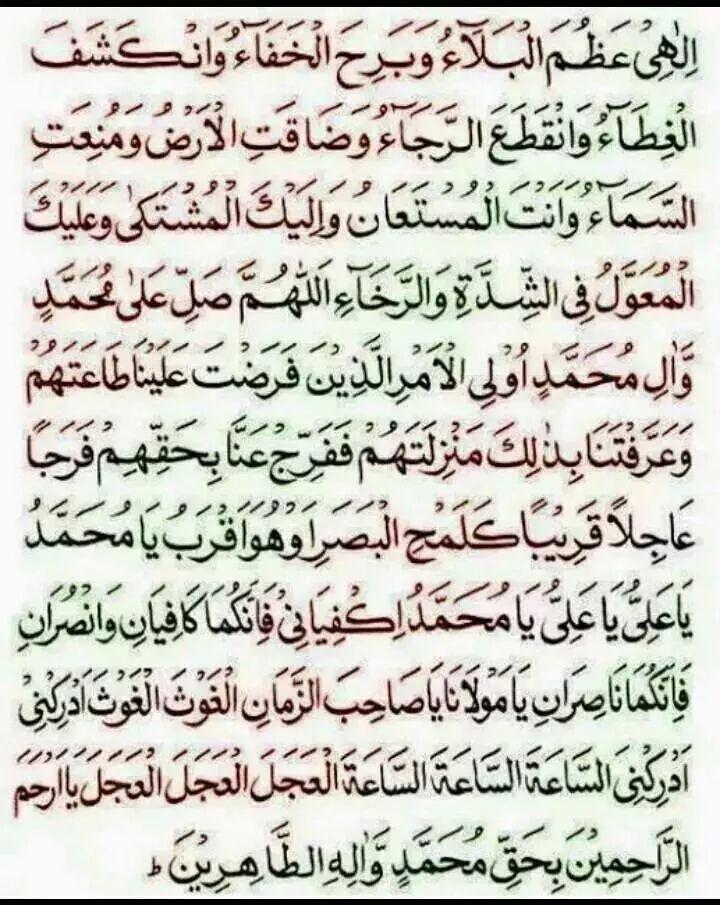 اِلٰهِىْ عَظُمَ الْبَلَآءُ وَبَرِحَ الْخَفَآءُ وَانْكَشَفَ
الْغِطَآءُ وَانْقَطَعَ الرَّجَآءُ وَضَاقَتِ الْاَرْضُ وَمُنِعَتِ
السَّمَآءُ وَاَنْتَ الْمُسْتَعَانُ وَاِلَيْكَ الْمُشْتَكٰى وَعَلَيْكَ
الْمُعَوَّلُ فِى الشِّدَّةِ وَالرَّخَآءِ اَللّٰهُمَّ صَلِّ عَلٰى مُحَمَّدٍ
وَّاٰلِ مُحَمَّدٍ اُولِى الْاَمْرِ الَّذِيْنَ فَرَضْتَ عَلَيْنَا طَاعَتَهُمْ
وَعَرَّفْتَنَا بِذٰلِكَ مَنْزِلَتَهُمْ فَفَرِّجْ عَنَّا بِحَقِّهِمْ فَرَجًا
عَاجِلًا قَرِيْبًا كَلَمْحِ الْبَصَرِ اَوْ هُوَ اَقْرَبُ يَا مُحَمَّدُ
يَا عَلِىُّ يَا عَلِىُّ يَا مُحَمَّدُ اِكْفِيَانِىْ فَاِنَّكُمَا كَافِيَانِ وَانْصُرَانِ
فَاِنَّكُمَا نَاصِرَانِ يَا مَوْلَانَا يَا صَاحِبَ الزَّمَانِ الْغَوْثَ الْغَوْثَ اَدْرِكْنِىْ
اَدْرِكْنِىْ السَّاعَةَ السَّاعَةَ السَّاعَةَ الْعَجَلَ الْعَجَلَ الْعَجَلَ يَا اَرْحَمَ
الرَّاحِمِيْنَ بِحَقِّ مُحَمَّدٍ وَّاٰلِهِ الطَّاهِرِيْنَ ط